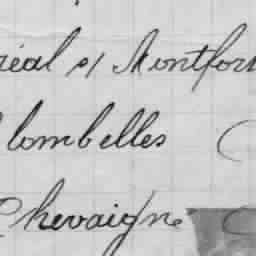 réal s/ Montfort
Colombelles
Chevaigné